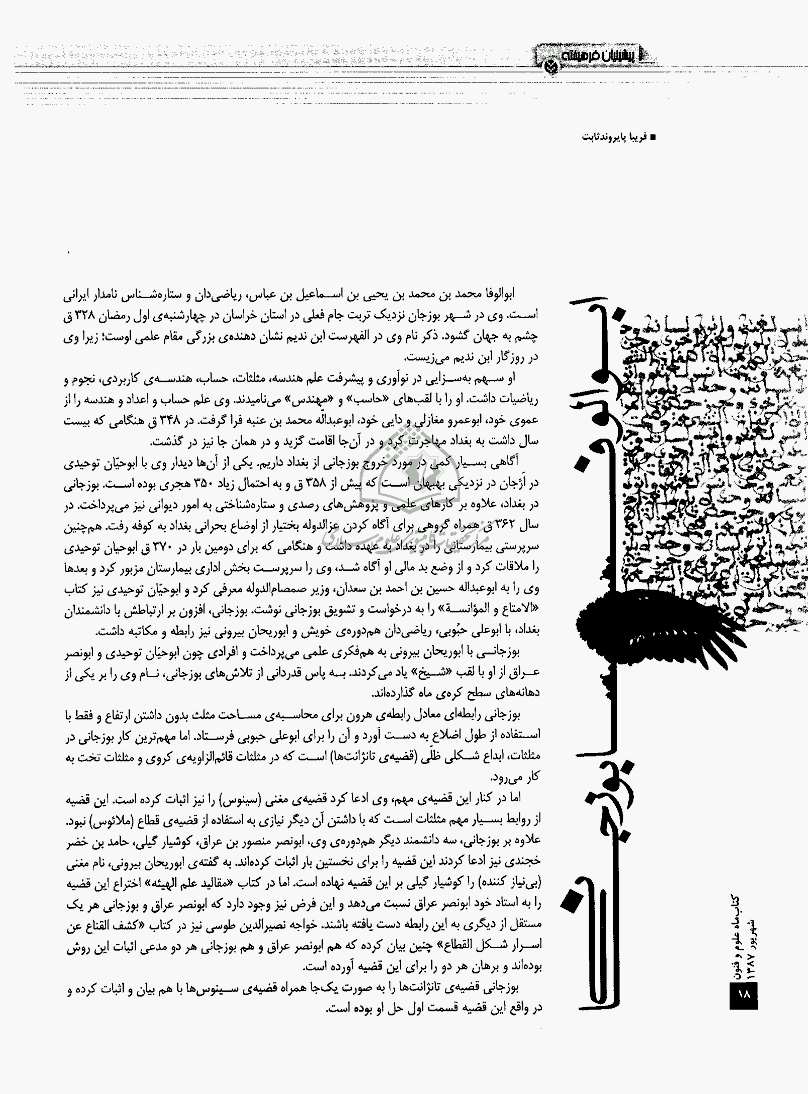 پیشینیان فرهیخته
■ فریبا پایروندثابت
ابوالوفا بوزجانی
ابوالوفا محمد بن محمد بن یحیی بن اسماعیل بن عباس، ریاضی‌دان و ستاره‌شناس نامدار ایرانی
است. وی در شهر بوزجان نزدیک تربت جام فعلی در استان خراسان در چهارشنبه‌ی اول رمضان ۳۲۸ ق
چشم به جهان گشود. ذکر نام وی در الفهرست ابن ندیم نشان دهنده‌ی بزرگی مقام علمی اوست؛ زیرا وی
در روزگار ابن ندیم می‌زیست.
او سهم به‌سزایی در نوآوری و پیشرفت علم هندسه، مثلثات، حساب، هندسه‌ی کاربردی، نجوم و
ریاضیات داشت. او را با لقب‌های «حاسب» و «مهندس» می‌نامیدند. وی علم حساب و اعداد و هندسه را از
عموی خود، ابوعمرو مغازلی و دایی خود، ابوعبداله محمد بن عنبه فرا گرفت. در ۳۴۸ ق هنگامی که بیست
سال داشت به بغداد مهاجرت کرد و در آن‌جا اقامت گزید و در همان جا نیز در گذشت.
آگاهی بسیار کمی در مورد خروج بوزجانی از بغداد داریم. یکی از آن‌ها دیدار وی با ابوحیّان توحیدی
در اَرّجان در نزدیکی بهبهان است که پیش از ۳۵۸ ق و به احتمال زیاد ۳۵۰ هجری بوده است. بوزجانی
در بغداد، علاوه بر کارهای علمی و پژوهش‌های رصدی و ستاره‌شناختی به امور دیوانی نیز می‌پرداخت. در
سال ۳۶۲ ق همراه گروهی برای آگاه کردن عزالدوله بختیار از اوضاع بحرانی بغداد به کوفه رفت. هم‌چنین
سرپرستی بیمارستانی را در بغداد به عهده داشت و هنگامی که برای دومین بار در ۳۷۰ ق ابوحیان توحیدی
را ملاقات کرد و از وضع بد مالی او آگاه شد، وی را سرپرست بخش اداری بیمارستان مزبور کرد و بعدها
وی را به ابوعبداله حسین بن احمد بن سعدان، وزیر صمصام‌الدوله معرفی کرد و ابوحیّان توحیدی نیز کتاب
«الامتاع و المؤانسة» را به درخواست و تشویق بوزجانی نوشت. بوزجانی، افزون بر ارتباطش با دانشمندان
بغداد، با ابوعلی حبُوبی، ریاضی‌دان هم‌دوره‌ی خویش و ابوریحان بیرونی نیز رابطه و مکاتبه داشت.
بوزجانی با ابوریحان بیرونی به هم‌فکری علمی می‌پرداخت و افرادی چون ابوحیّان توحیدی و ابونصر
عراق از او با لقب «شیخ» یاد می‌کردند. به پاس قدردانی از تلاش‌های بوزجانی، نام وی را بر یکی از
دهانه‌های سطح کره‌ی ماه گذارده‌اند.
بوزجانی رابطه‌ای معادل رابطه‌ی هرون برای محاسبه‌ی مساحت مثلث بدون داشتن ارتفاع و فقط با
استفاده از طول اضلاع به دست آورد و آن را برای ابوعلی حبوبی فرستاد. اما مهم‌ترین کار بوزجانی در
مثلثات، ابداع شکلی ظلّی (قضیه‌ی تانژانت‌ها) است که در مثلثات قائم‌الزاویه‌ی کروی و مثلثات تخت به
کار می‌رود.
اما در کنار این قضیه‌ی مهم، وی ادعا کرد قضیه‌ی مغنی (سینوس) را نیز اثبات کرده است. این قضیه
از روابط بسیار مهم مثلثات است که با داشتن آن دیگر نیازی به استفاده از قضیه‌ی قطاع (ملائوس) نبود.
علاوه بر بوزجانی، سه دانشمند دیگر هم‌دوره‌ی وی، ابونصر منصور بن عراق، کوشیار گیلی، حامد بن خضر
خجندی نیز ادعا کردند این قضیه را برای نخستین بار اثبات کرده‌اند. به گفته‌ی ابوریحان بیرونی، نام مغنی
(بی‌نیاز کننده) را کوشیار گیلی بر این قضیه نهاده است. اما در کتاب «مقالید علم الهیئه» اختراع این قضیه
را به استاد خود ابونصر عراق نسبت می‌دهد و این فرض نیز وجود دارد که ابونصر عراق و بوزجانی هر یک
مستقل از دیگری به این رابطه دست یافته باشند. خواجه نصیرالدین طوسی نیز در کتاب «کشف القناع عن
اسرار شکل القطاع» چنین بیان کرده که هم ابونصر عراق و هم بوزجانی هر دو مدعی اثبات این روش
بوده‌اند و برهان هر دو را برای این قضیه آورده است.
بوزجانی قضیه‌ی تانژانت‌ها را به صورت یک‌جا همراه قضیه‌ی سینوس‌ها با هم بیان و اثبات کرده و
در واقع این قضیه قسمت اول حل او بوده است.
کتاب‌ماه علوم و فنون
شهریور ۱۳۸۷
۱۸